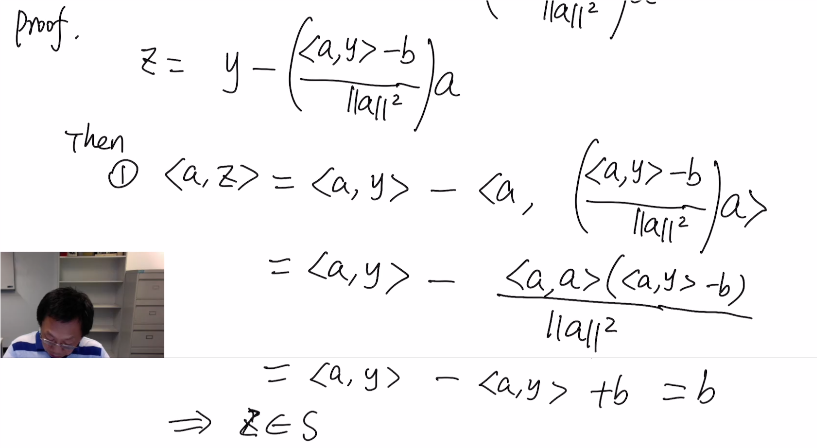 ‖a‖²
Proof.
z = y − (<a,y> − b / ‖a‖²) a
Then
① <a,z> = <a,y> − <a, (<a,y> − b / ‖a‖²) a>
= <a,y> − <a,a>(<a,y> − b) / ‖a‖²
= <a,y> − <a,y> + b = b
⇒ z ∈ S